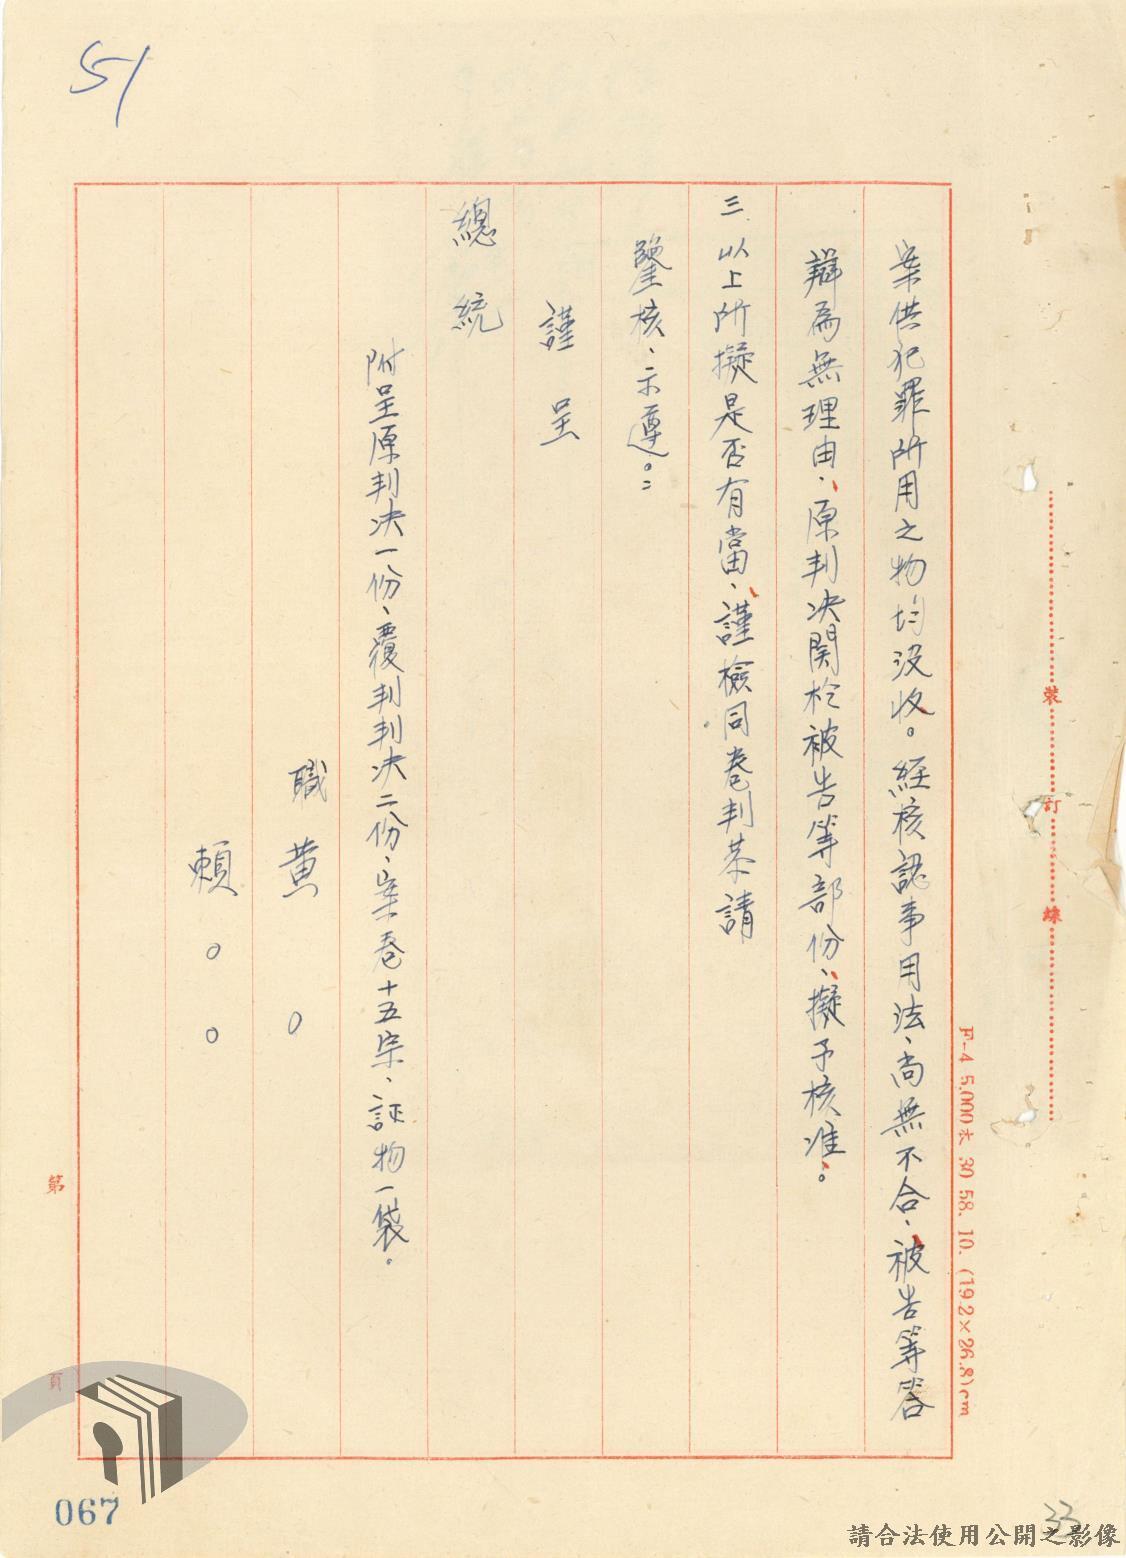 51
案供犯罪所用之物均沒收。經核認事用法、尚無不合、被告等答
辯為無理由、原判決關於被告等部份、擬予核准。
三 以上所擬是否有當、謹檢同卷判恭請
鑒核、示遵。
謹呈
總統
附呈原判決一份、覆判判決二份、案卷十五宗、証物一袋。
職 黃 ○
賴 ○ ○
裝 訂 線
F-4 5,000本 30 58. 10. (19.2×26.8)cm
第 頁
067
33
請合法使用公開之影像